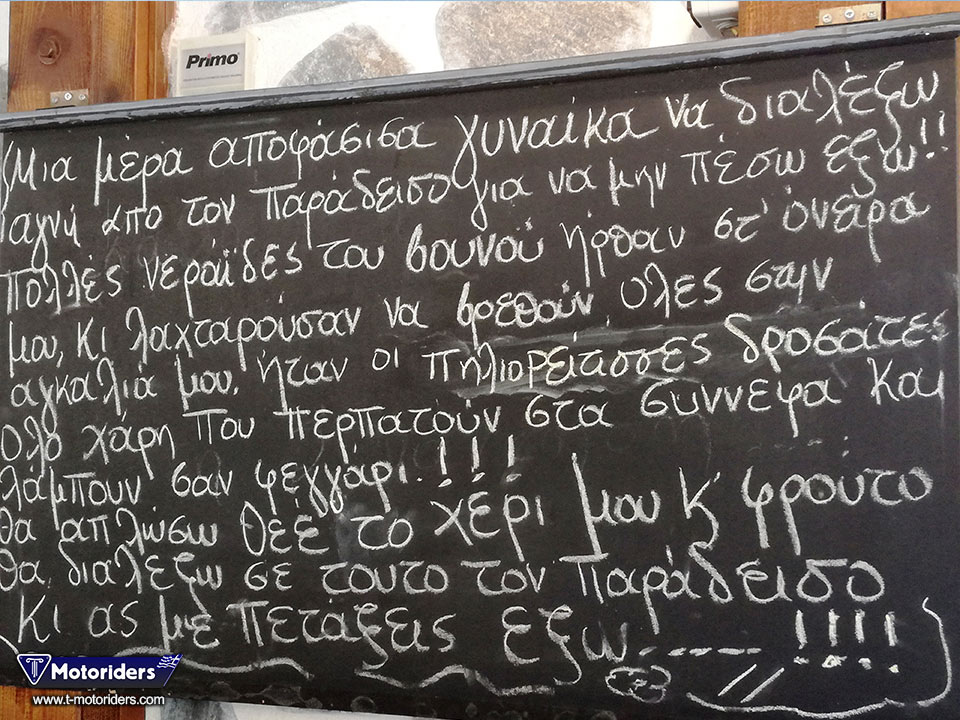 Primo
Μια μέρα αποφάσισα γυναίκα να διαλέξω
αγνή απο τον Παράδεισο για να μην πέσω έξω!!
Πολλές νεράϊδες του βουνού ήρθαν στ' όνειρα
μου, κι λαχταρούσαν να βρεθούν, όλες στην
αγκαλιά μου, ήταν οι πηλιορείτισσες δροσάτες
όλο χάρη που περπατούν στα σύννεφα και
λάμπουν σαν φεγγάρι!!!
θα απλώσω θεέ το χέρι μου κ' φρούτο
θα διαλέξω σε τουτο τον παράδεισο
κι ας με πετάξεις έξω.-----!!!!
T Motoriders
www.t-motoriders.com